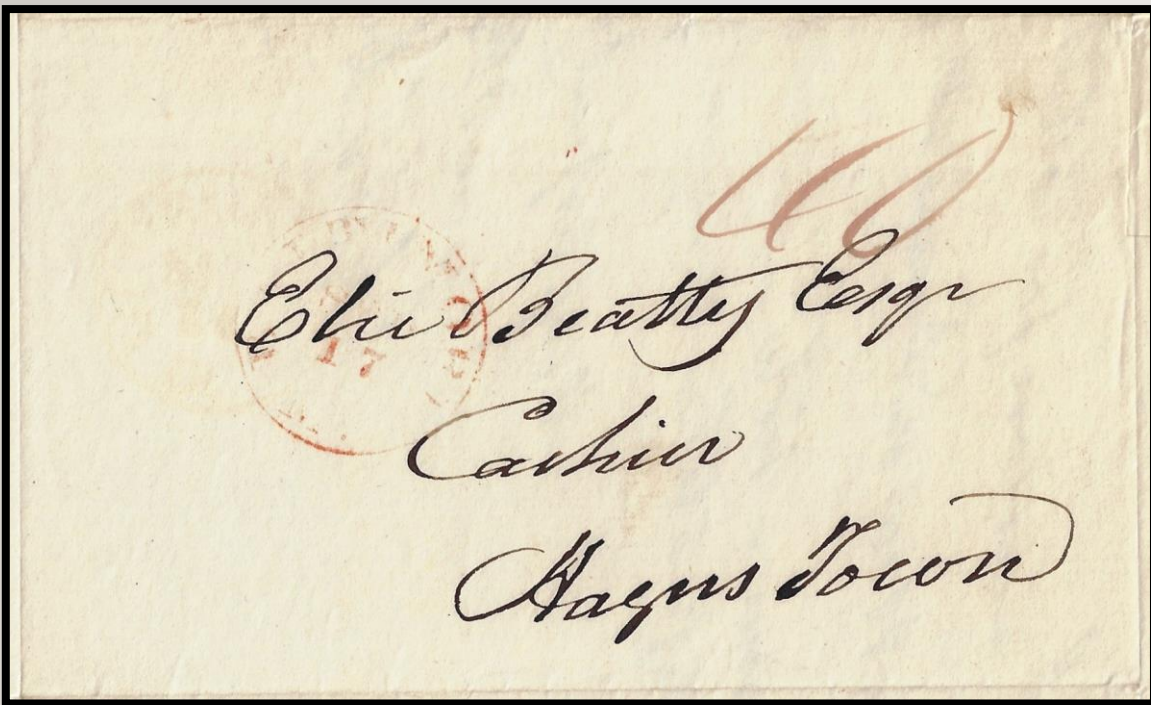 40
Elie Beatty Esqr
17
Cashier
Hagers Town